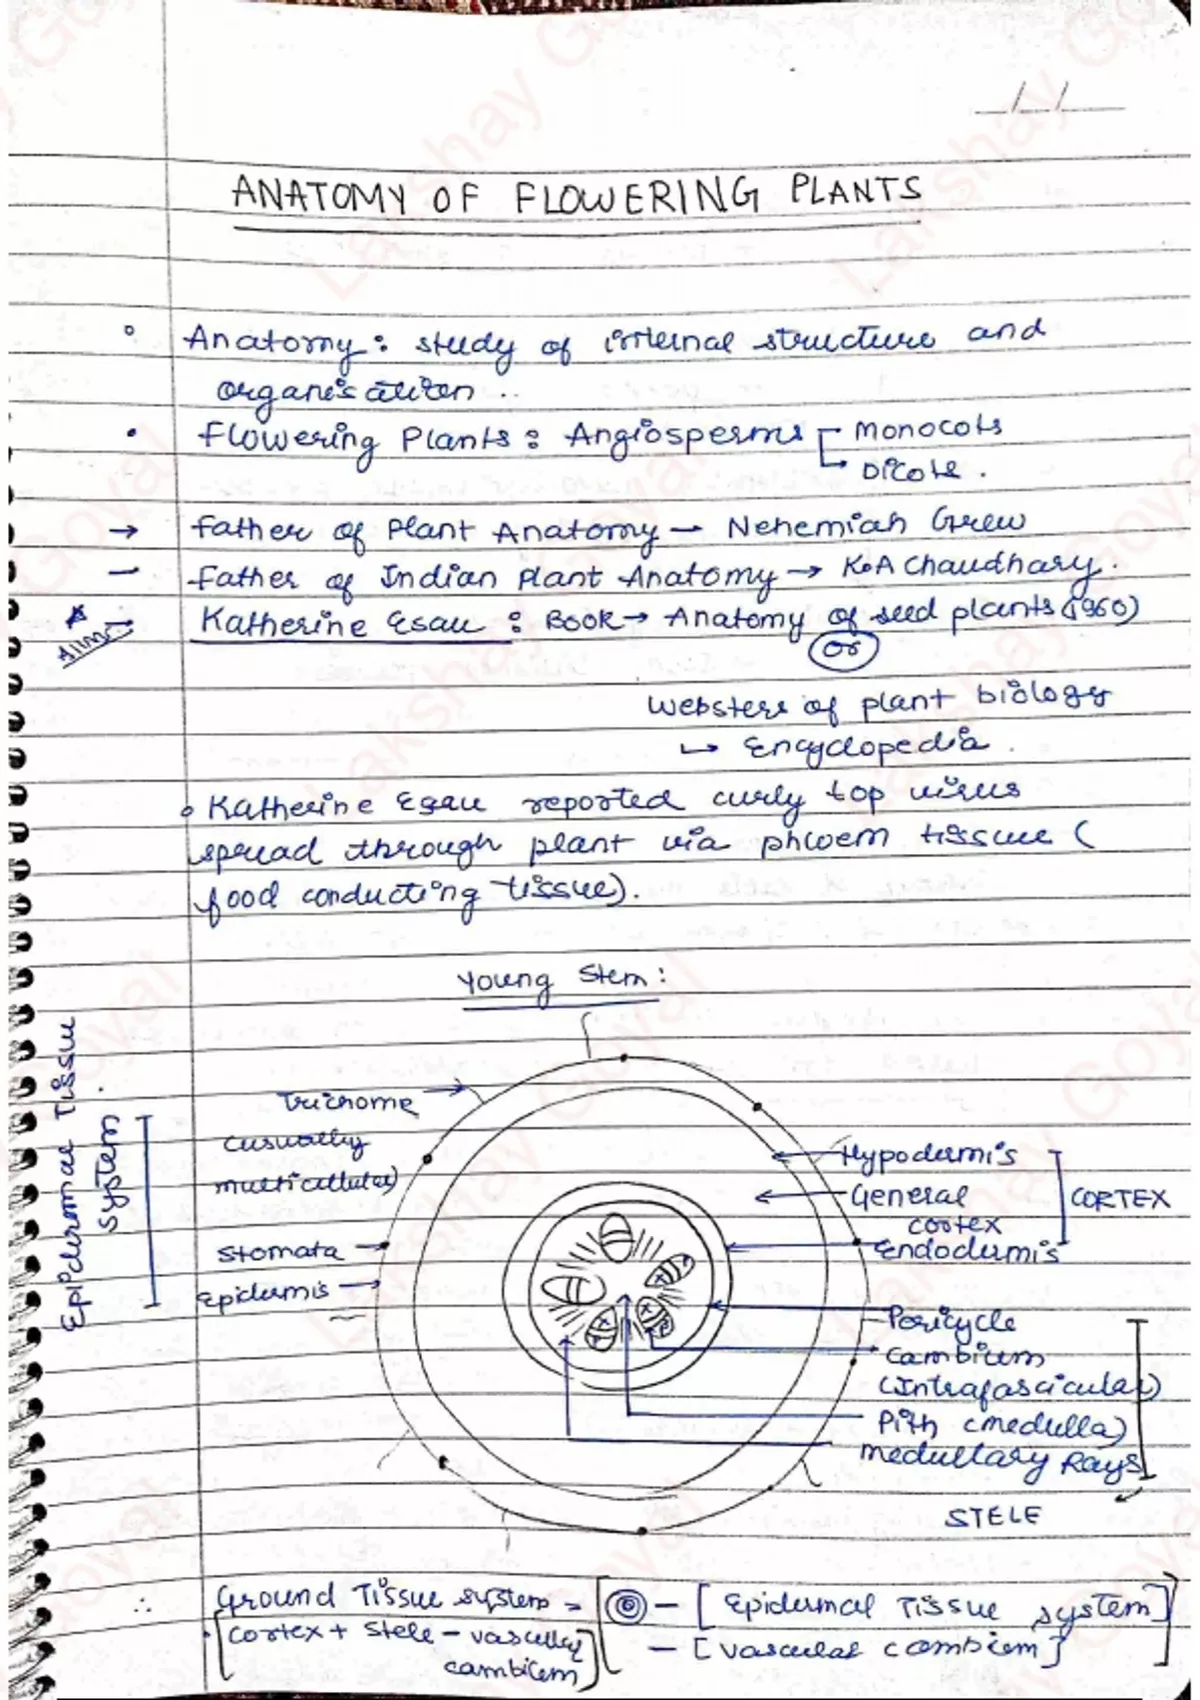 ANATOMY OF FLOWERING PLANTS
Anatomy: study of internal structure and
organisation ..
Flowering Plants: Angiosperms
Monocots
Dicots.
→ Father of Plant Anatomy — Nehemiah Grew
— Father of Indian Plant Anatomy → K.A Chaudhary.
→ Katherine Esau: Book → Anatomy of seed plants (1960)
or
Websters of plant biology
↳ Encyclopedia.
Katherine Esau reported curly top virus
spread through plant via phloem tissue (
food conducting tissue).
Young Stem:
Epidermal Tissue
System.
Trichome
(usually
multicellular)
Stomata
Epidermis
Hypodermis
General
cortex
Endodermis
CORTEX
Pericycle
Cambium
(Intrafascicular)
Pith (medulla)
medullary Rays
STELE
∴ Ground Tissue system =
[Cortex + Stele - vascular
cambium]
- [Epidermal Tissue system]
- [vascular cambium]
Lakshay Goyal